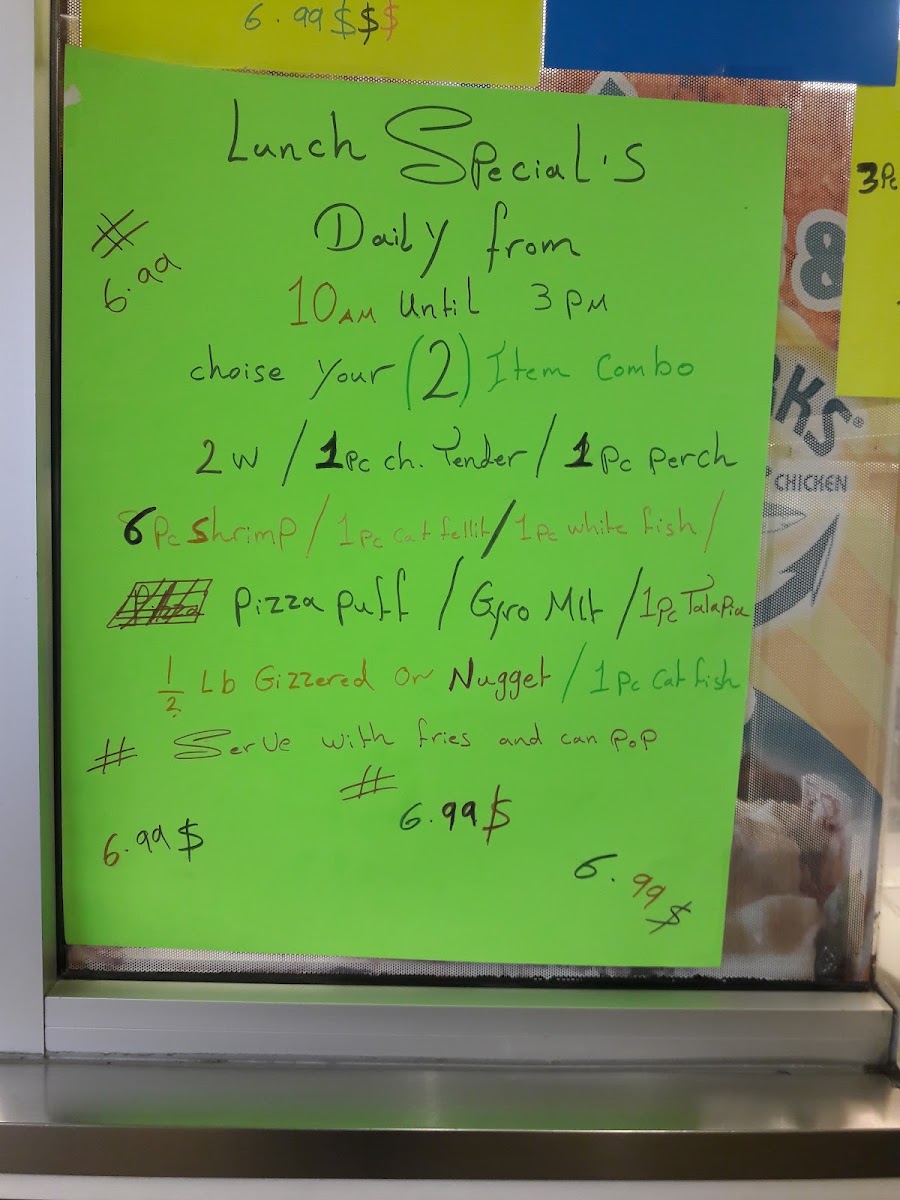 6.99 $$$
Lunch Special's
#
6.99
Daily from
10AM Until 3PM
choise Your (2) Item Combo
2W / 1Pc ch. Tender / 1Pc Perch
6Pc Shrimp / 1Pc Cat fellit / 1Pc white fish /
Pizza
Pizza Puff / Gyro Mlt / 1Pc TalaPia
1/2 Lb Gizzered Or Nugget / 1Pc Cat fish
# Serve with fries and can PoP
#
6.99$
6.99$
6.99$
3Pc
8
RKS®
CHICKEN